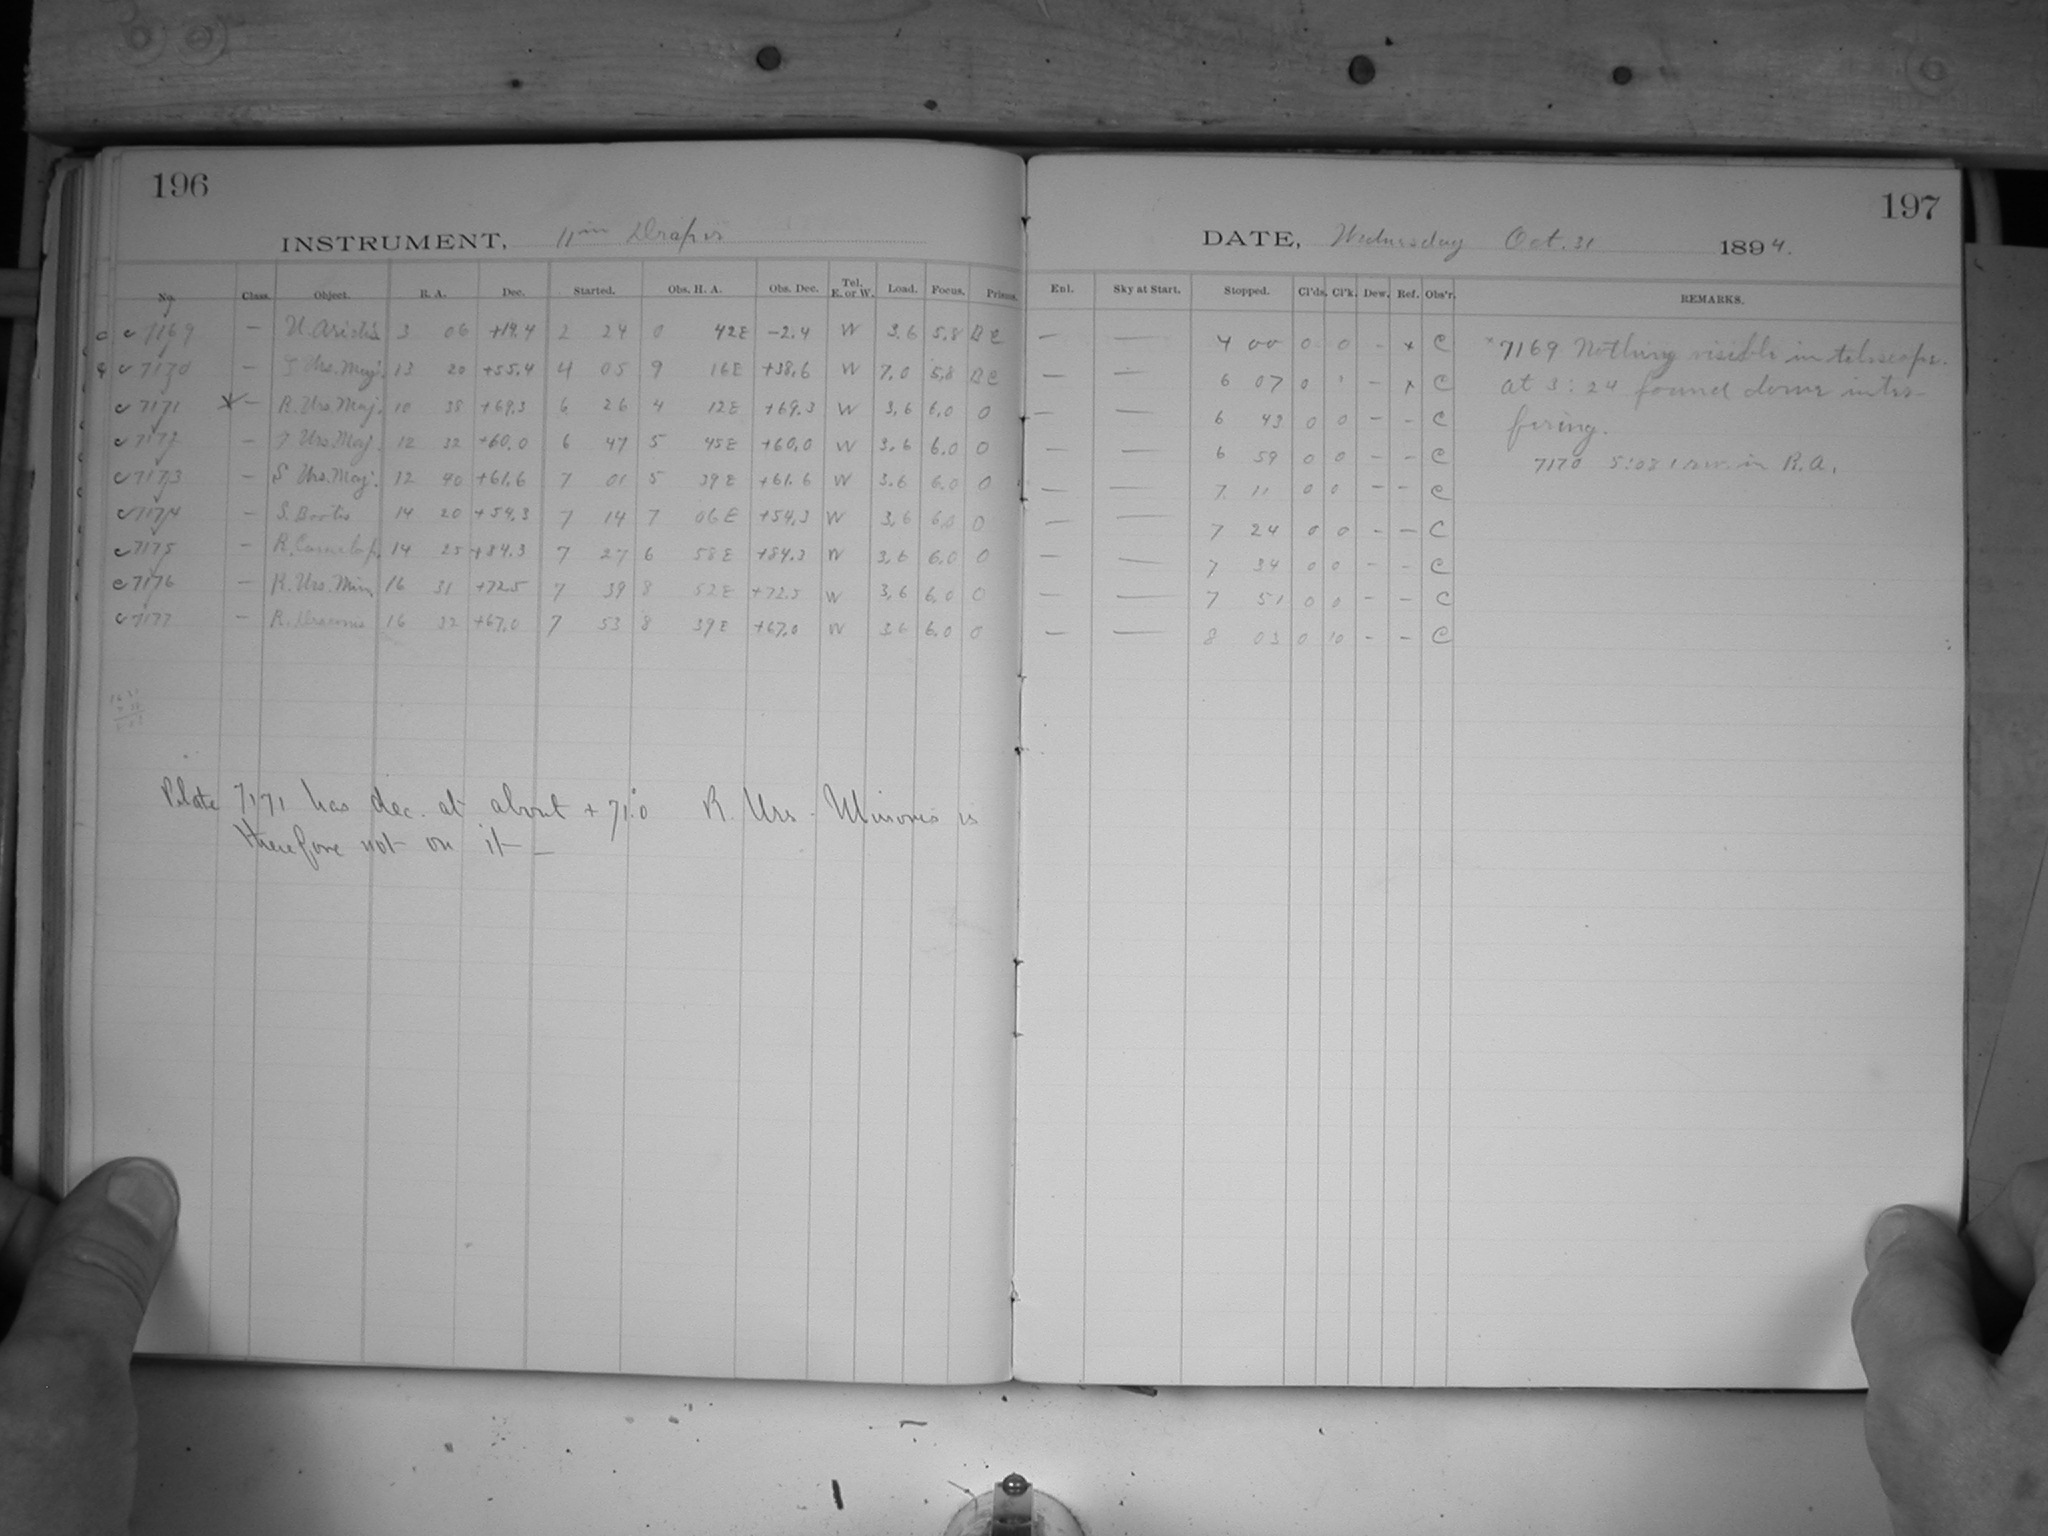 196
INSTRUMENT, 11 in Draper
No. Class. Object. R. A. Dec. Started. Obs. H. A. Obs. Dec. Tel. E. or W. Load. Focus. Prisms.
c 7169 — U. Arietis 3 06 +14.4 2 24 0 42E −2.4 W 3.6 5.8 BC
7170 — Urs. Maj. 13 20 +55.4 4 05 9 16E +38.6 W 7.0 5.8 BC
7171 X — R. Urs. Maj. 10 38 +69.3 6 26 4 12E +69.3 W 3.6 6.0 0
7172 — T Urs. Maj. 12 32 +60.0 6 47 5 45E +60.0 W 3.6 6.0 0
7173 — S Urs. Maj. 12 40 +61.6 7 01 5 39E +61.6 W 3.6 6.0 0
7174 — S. Bootis 14 20 +54.3 7 14 7 06E +54.3 W 3.6 6.0 0
7175 — R. Camelop. 14 25 +84.3 7 27 6 58E +84.3 W 3.6 6.0 0
7176 — R. Urs. Min. 16 31 +72.5 7 39 8 52E +72.5 W 3.6 6.0 0
7177 — R. Draconis 16 32 +67.0 7 53 8 39E +67.0 W 3.6 6.0 0
Plate 7171 has dec. at about +71°.0 R. Urs. Minoris is
therefore not on it —
197
DATE, Wednesday Oct. 31 1894.
Enl. Sky at Start. Stopped. Cl'ds. Cl'k. Dew. Ref. Obs'r. REMARKS.
— — 4 00 0 0 - x C x 7169 Nothing visible in telescope.
— — 6 07 0 - x C at 3:24 found dome inter-
— — 6 43 0 0 - - C fering.
— — 6 59 0 0 - - C 7170 5:08 in R.A.
— — 7 11 0 0 - - C
— — 7 24 0 0 - - C
— — 7 34 0 0 - - C
— — 7 51 0 0 - - C
— — 8 03 0 10 - - C